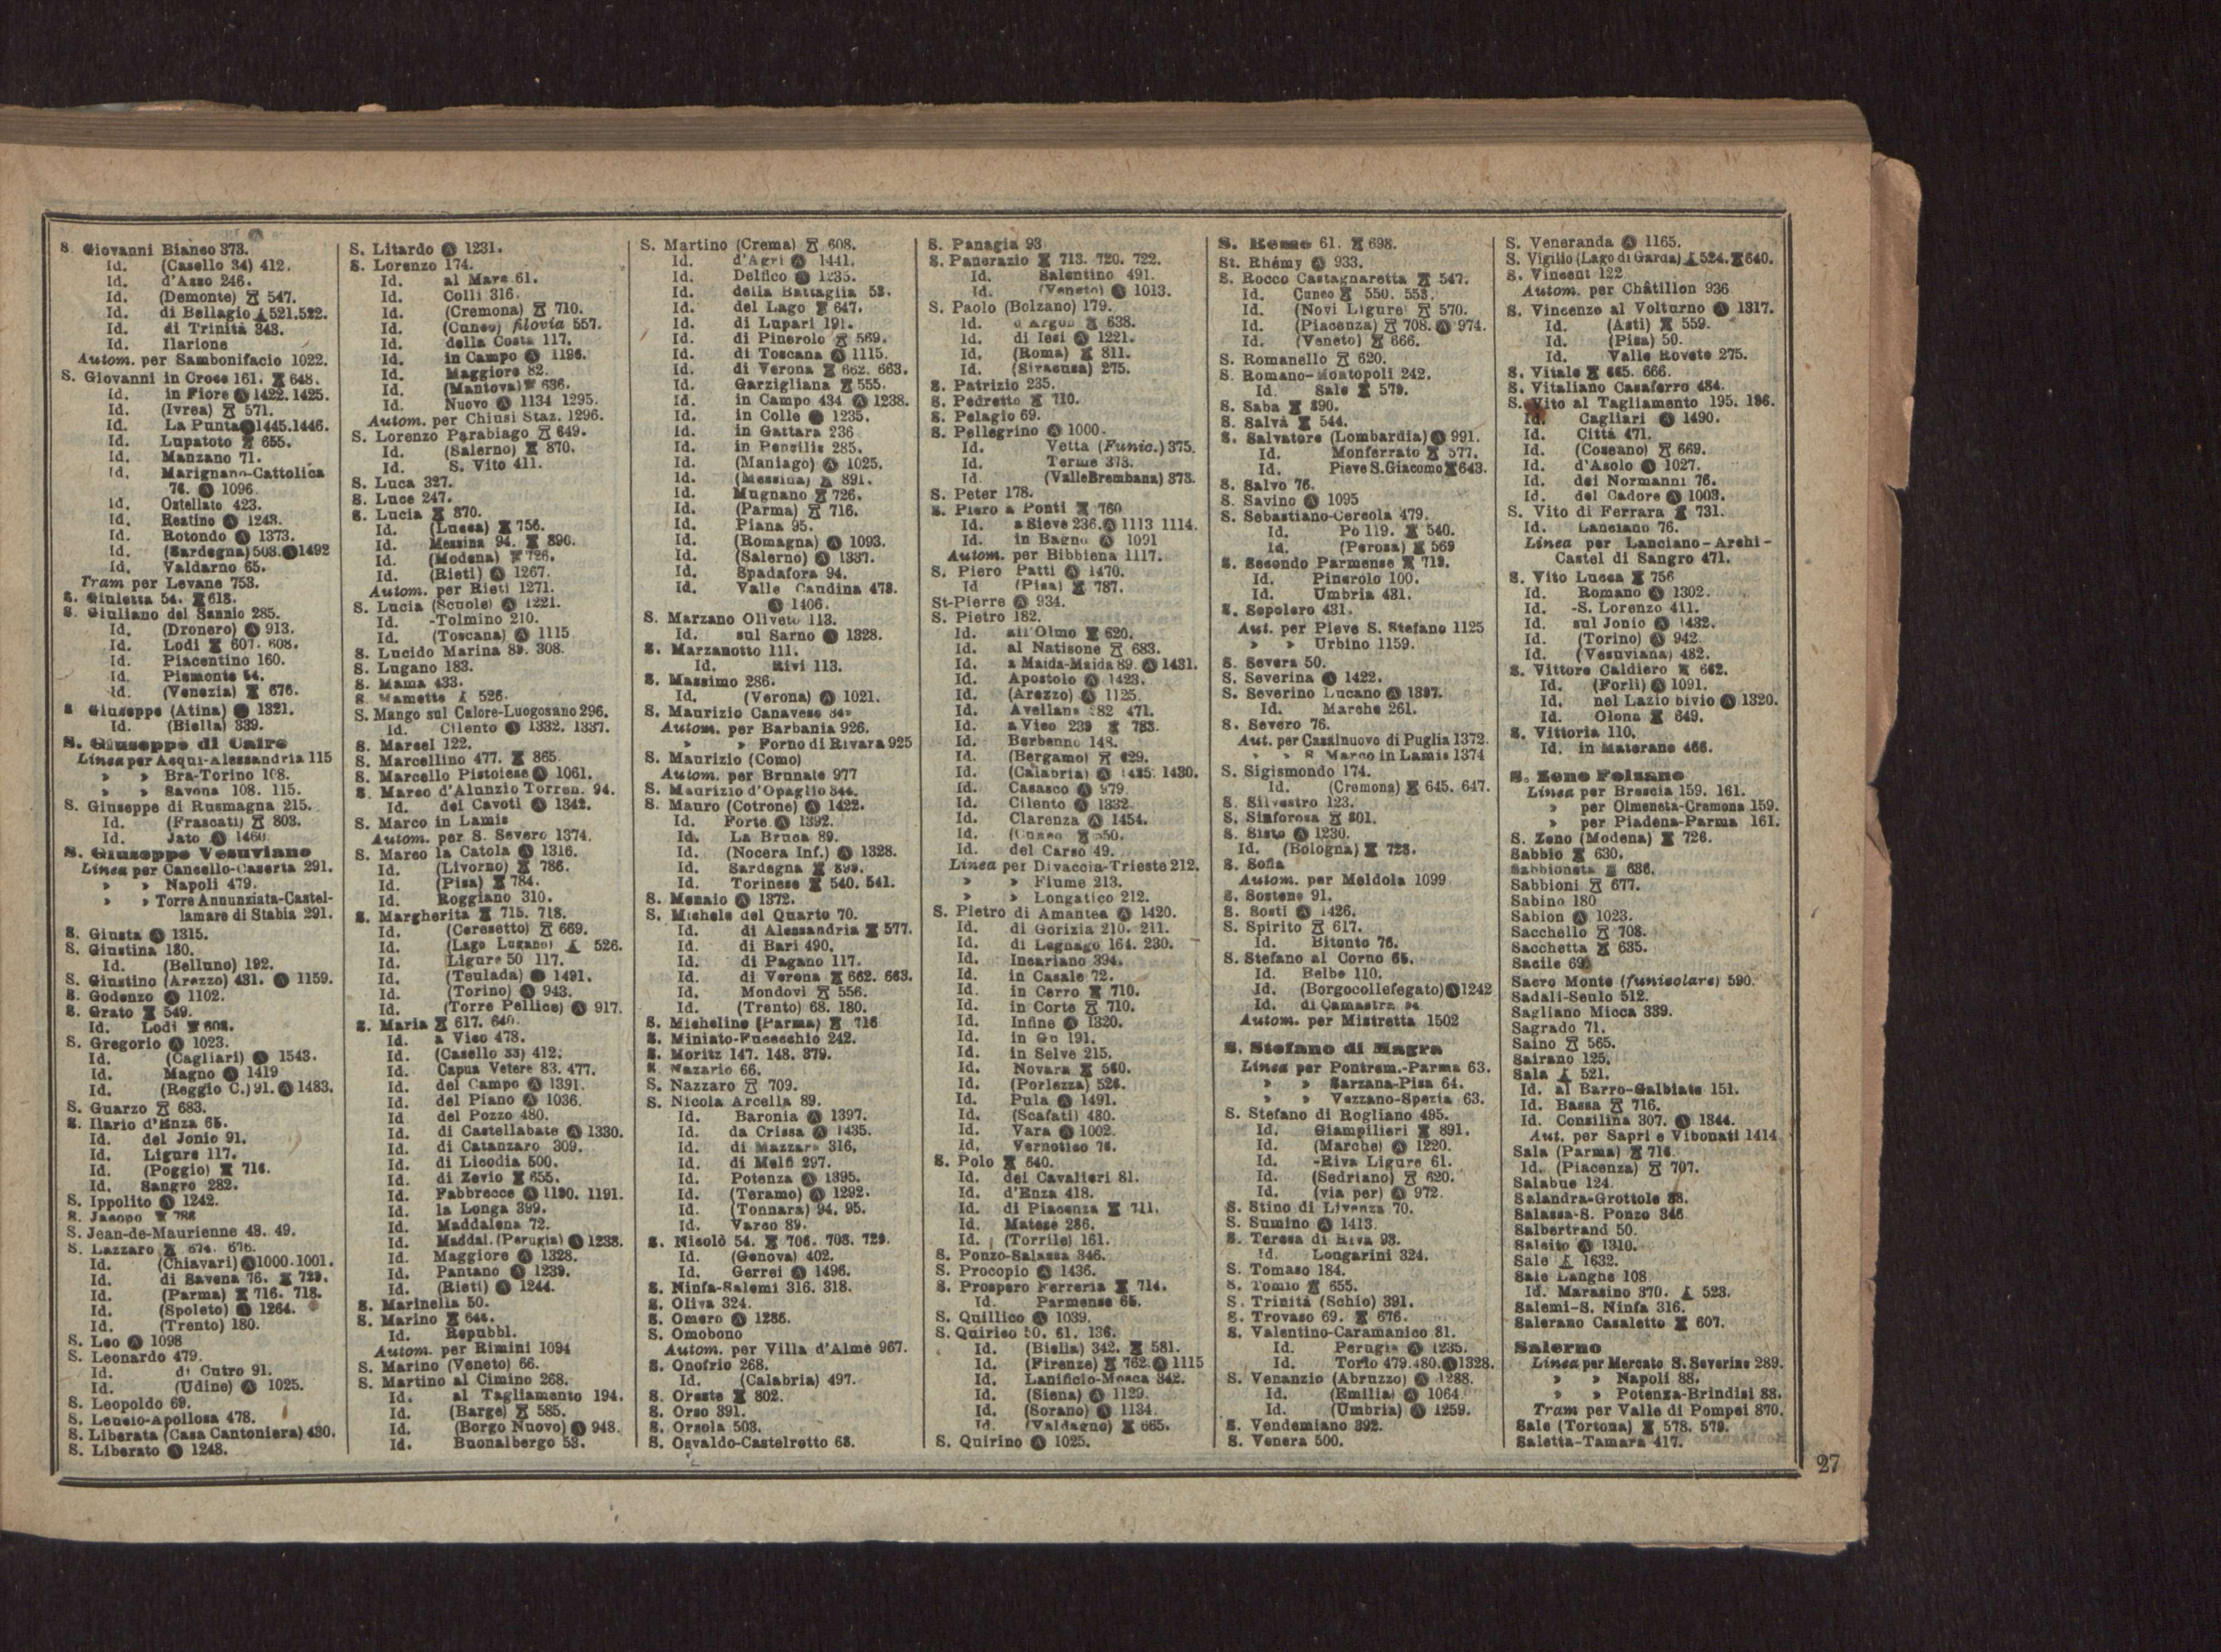 S. Giovanni Bianco 373.
Id. (Casello 34) 412.
Id. d'Asso 246.
Id. (Demonte) 547.
Id. di Bellagio 521.522.
Id. di Trinità 343.
Id. Ilarione
Autom. per Sambonifacio 1022.
S. Giovanni in Croce 161. 648.
Id. in Fiore Ⓐ 1422. 1425.
Id. (Ivrea) 571.
Id. La Punta Ⓐ 1445.1446.
Id. Lupatoto 655.
Id. Manzano 71.
Id. Marignano-Cattolica
76. Ⓐ 1096.
Id. Ostellato 423.
Id. Reatino Ⓐ 1248.
Id. Rotondo Ⓐ 1373.
Id. (Sardegna) 508. Ⓐ 1492
Id. Valdarno 65.
Tram per Levane 753.
S. Giuletta 54. 618.
S. Giuliano del Sannio 285.
Id. (Dronero) Ⓐ 913.
Id. Lodi 607. 608.
Id. Piacentino 160.
Id. Piemonte 54.
Id. (Venezia) 676.
S. Giuseppe (Atina) Ⓐ 1321.
Id. (Biella) 339.
S. Giuseppe di Cairo
Linea per Acqui-Alessandria 115
» » Bra-Torino 108.
» » Savona 108. 115.
S. Giuseppe di Rusmagna 215.
Id. (Frascati) 803.
Id. Jato Ⓐ 1460.
S. Giuseppe Vesuviano
Linea per Cancello-Caserta 291.
» » Napoli 479.
» » Torre Annunziata-Castel-
lamare di Stabia 291.
S. Giusta Ⓐ 1315.
S. Giustina 180.
Id. (Belluno) 192.
S. Giustino (Arezzo) 431. Ⓐ 1159.
S. Godenzo Ⓐ 1102.
S. Grato 549.
Id. Lodi 608.
S. Gregorio Ⓐ 1023.
Id. (Cagliari) Ⓐ 1543.
Id. Magno Ⓐ 1419
Id. (Reggio C.) 91. Ⓐ 1483.
S. Guarzo 683.
S. Ilario d'Enza 65.
Id. del Jonio 91.
Id. Ligure 117.
Id. (Poggio) 716.
Id. Sangro 282.
S. Ippolito Ⓐ 1242.
S. Jacopo 786
S. Jean-de-Maurienne 48. 49.
S. Lazzaro 674. 676.
Id. (Chiavari) Ⓐ 1000.1001.
Id. di Savena 76. 729.
Id. (Parma) 716. 718.
Id. (Spoleto) Ⓐ 1264.
Id. (Trento) 180.
S. Leo Ⓐ 1098
S. Leonardo 479.
Id. di Cutro 91.
Id. (Udine) Ⓐ 1025.
S. Leopoldo 69.
S. Leucio-Apollosa 478.
S. Liberata (Casa Cantoniera) 430.
S. Liberato Ⓐ 1248.
S. Litardo Ⓐ 1231.
S. Lorenzo 174.
Id. al Mare 61.
Id. Colli 316.
Id. (Cremona) 710.
Id. (Cuneo) filovia 557.
Id. della Costa 117.
Id. in Campo Ⓐ 1196.
Id. Maggiore 82.
Id. (Mantova) 636.
Id. Nuovo Ⓐ 1134 1295.
Autom. per Chiusi Staz. 1296.
S. Lorenzo Parabiago 649.
Id. (Salerno) 870.
Id. S. Vito 411.
S. Luca 327.
S. Luce 247.
S. Lucia 870.
Id. (Lucca) 756.
Id. Messina 94. 890.
Id. (Modena) 726.
Id. (Rieti) Ⓐ 1267.
Autom. per Rieti 1271.
S. Lucia (Scuole) Ⓐ 1221.
Id. -Tolmino 210.
Id. (Toscana) Ⓐ 1115
S. Lucido Marina 89. 308.
S. Lugano 183.
S. Mama 433.
S. Mamette 526.
S. Mango sul Calore-Luogosano 296.
Id. Cilento Ⓐ 1332. 1337.
S. Marcel 122.
S. Marcellino 477. 865.
S. Marcello Pistoiese Ⓐ 1061.
S. Marco d'Alunzio Torren. 94.
Id. dei Cavoti Ⓐ 1342.
S. Marco in Lamis
Autom. per S. Severo 1374.
S. Marco la Catola Ⓐ 1316.
Id. (Livorno) 786.
Id. (Pisa) 784.
Id. Roggiano 310.
S. Margherita 715. 718.
Id. (Ceresetto) 669.
Id. (Lago Lugano) 526.
Id. Ligure 50 117.
Id. (Teulada) Ⓐ 1491.
Id. (Torino) Ⓐ 943.
Id. (Torre Pellice) Ⓐ 917.
S. Maria 617. 640.
Id. a Vico 478.
Id. (Casello 33) 412.
Id. Capua Vetere 83. 477.
Id. del Campo Ⓐ 1391.
Id. del Piano Ⓐ 1036.
Id. del Pozzo 480.
Id. di Castellabate Ⓐ 1330.
Id. di Catanzaro 309.
Id. di Licodia 500.
Id. di Zevio 655.
Id. Fabbrecce Ⓐ 1190. 1191.
Id. la Longa 399.
Id. Maddalena 72.
Id. Maddal. (Perugia) Ⓐ 1238.
Id. Maggiore Ⓐ 1328.
Id. Pantano Ⓐ 1239.
Id. (Rieti) Ⓐ 1244.
S. Marinella 50.
S. Marino 644.
Id. Repubbl.
Autom. per Rimini 1094
S. Marino (Veneto) 66.
S. Martino al Cimino 268.
Id. al Tagliamento 194.
Id. (Barge) 585.
Id. (Borgo Nuovo) Ⓐ 948.
Id. Buonalbergo 53.
S. Martino (Crema) 608.
Id. d'Agri Ⓐ 1441.
Id. Delfico Ⓐ 1235.
Id. della Battaglia 53.
Id. del Lago 647.
Id. di Lupari 191.
Id. di Pinerolo 569.
Id. di Toscana Ⓐ 1115.
Id. di Verona 662. 663.
Id. Garzigliana 555.
Id. in Campo 434 Ⓐ 1238.
Id. in Colle Ⓐ 1235.
Id. in Gattara 236
Id. in Pensilis 285.
Id. (Maniago) Ⓐ 1025.
Id. (Messina) 891.
Id. Mugnano 726.
Id. (Parma) 716.
Id. Piana 95.
Id. (Romagna) Ⓐ 1093.
Id. (Salerno) Ⓐ 1337.
Id. Spadafora 94.
Id. Valle Caudina 478.
Ⓐ 1406.
S. Marzano Oliveto 113.
Id. sul Sarno Ⓐ 1328.
S. Marzanotto 111.
Id. Rivi 113.
S. Massimo 286.
Id. (Verona) Ⓐ 1021.
S. Maurizio Canavese
Autom. per Barbania 926.
» » Forno di Rivara 925
S. Maurizio (Como)
Autom. per Brunate 977
S. Maurizio d'Opaglio 344.
S. Mauro (Cotrone) Ⓐ 1422.
Id. Forte Ⓐ 1392.
Id. La Bruca 89.
Id. (Nocera Inf.) Ⓐ 1328.
Id. Sardegna 899.
Id. Torinese 540. 541.
S. Menaio Ⓐ 1372.
S. Michele del Quarto 70.
Id. di Alessandria 577.
Id. di Bari 490.
Id. di Pagano 117.
Id. di Verona 662. 663.
Id. Mondovì 556.
Id. (Trento) 68. 180.
S. Michelino (Parma) 716
S. Miniato-Fucecchio 242.
S. Moritz 147. 148. 379.
S. Nazario 66.
S. Nazzaro 709.
S. Nicola Arcella 89.
Id. Baronia Ⓐ 1397.
Id. da Crissa Ⓐ 1435.
Id. di Mazzara 316.
Id. di Melfi 297.
Id. Potenza Ⓐ 1395.
Id. (Teramo) Ⓐ 1292.
Id. (Tonnara) 94. 95.
Id. Varco 89.
S. Nicolò 54. 706. 708. 729.
Id. (Genova) 402.
Id. Gerrei Ⓐ 1496.
S. Ninfa-Salemi 316. 318.
S. Oliva 324.
S. Omero Ⓐ 1286.
S. Omobono
Autom. per Villa d'Almè 967.
S. Onofrio 268.
Id. (Calabria) 497.
S. Oreste 802.
S. Orso 391.
S. Orsola 503.
S. Osvaldo-Castelrotto 68.
S. Panagia 93
S. Pancrazio 713. 720. 722.
Id. Salentino 491.
Id. (Veneto) Ⓐ 1013.
S. Paolo (Bolzano) 179.
Id. d'Argon 638.
Id. di Iesi Ⓐ 1221.
Id. (Roma) 811.
Id. (Siracusa) 275.
S. Patrizio 235.
S. Pedretto 710.
S. Pelagio 69.
S. Pellegrino Ⓐ 1000.
Id. Vetta (Funic.) 375.
Id. Terme 373.
Id. (Valle Brembana) 373.
S. Peter 178.
S. Piero a Ponti 760
Id. a Sieve 236. Ⓐ 1113 1114.
Id. in Bagno Ⓐ 1091
Autom. per Bibbiena 1117.
S. Piero Patti Ⓐ 1470.
Id (Pisa) 787.
St-Pierre Ⓐ 934.
S. Pietro 182.
Id. all'Olmo 620.
Id. al Natisone 683.
Id. a Maida-Maida 89. Ⓐ 1431.
Id. Apostolo Ⓐ 1423.
Id. (Arezzo) Ⓐ 1125.
Id. Avellana 282 471.
Id. a Vico 239 783.
Id. Berbenno 148.
Id. (Bergamo) 629.
Id. (Calabria) Ⓐ 1425. 1430.
Id. Casasco Ⓐ 979.
Id. Cilento Ⓐ 1332
Id. Clarenza Ⓐ 1454.
Id. (Cuneo) 550.
Id. del Carso 49.
Linea per Divaccia-Trieste 212.
» » Fiume 213.
» » Longatico 212.
S. Pietro di Amantea Ⓐ 1420.
Id. di Gorizia 210. 211.
Id. di Legnago 164. 230.
Id. Incariano 394.
Id. in Casale 72.
Id. in Cerro 710.
Id. in Corte 710.
Id. Infine Ⓐ 1320.
Id. in Gu 191.
Id. in Selve 215.
Id. Novara 580.
Id. (Porlezza) 526.
Id. Pula Ⓐ 1491.
Id. (Scafati) 480.
Id. Vara Ⓐ 1002.
Id. Vernotico 76.
S. Polo 640.
Id. dei Cavalieri 81.
Id. d'Enza 418.
Id. di Piacenza 711.
Id. Matese 286.
Id. (Torrile) 161.
S. Ponzo-Salassa 346.
S. Procopio Ⓐ 1436.
S. Prospero Ferreria 714.
Id. Parmense 65.
S. Quillico Ⓐ 1039.
S. Quirico 50. 61. 136.
Id. (Biella) 342. 581.
Id. (Firenze) 762. Ⓐ 1115
Id. Lanificio-Mosca 342.
Id. (Siena) Ⓐ 1129.
Id. (Sorano) Ⓐ 1134.
Id. (Valdagno) 665.
S. Quirino Ⓐ 1025.
S. Remo 61. 698.
St. Rhémy Ⓐ 933.
S. Rocco Castagnaretta 547.
Id. Cuneo 550. 553.
Id. (Novi Ligure) 570.
Id. (Piacenza) 708. Ⓐ 974.
Id. (Veneto) 666.
S. Romanello 620.
S. Romano-Montopoli 242.
Id. Sale 579.
S. Saba 890.
S. Salvà 544.
S. Salvatore (Lombardia) Ⓐ 991.
Id. Monferrato 577.
Id. Pieve S. Giacomo 643.
S. Salvo 76.
S. Savino Ⓐ 1095
S. Sebastiano-Cercola 479.
Id. Po 119. 540.
Id. (Perosa) 569
S. Secondo Parmense 719.
Id. Pinerolo 100.
Id. Umbria 431.
S. Sepolcro 431.
Aut. per Pieve S. Stefano 1125
» » Urbino 1159.
S. Severa 50.
S. Severina Ⓐ 1422.
S. Severino Lucano Ⓐ 1397.
Id. Marche 261.
S. Severo 76.
Aut. per Casalnuovo di Puglia 1372.
» » S. Marco in Lamis 1374
S. Sigismondo 174.
Id. (Cremona) 645. 647.
S. Silvestro 123.
S. Sinforosa 801.
S. Sisto Ⓐ 1230.
Id. (Bologna) 723.
S. Sofia
Autom. per Meldola 1099
S. Sostene 91.
S. Sosti Ⓐ 1426.
S. Spirito 617.
Id. Bitonto 76.
S. Stefano al Corno 65.
Id. Belbo 110.
Id. (Borgocollefegato) Ⓐ 1242
Id. di Camastra 94
Autom. per Mistretta 1502
S. Stefano di Magra
Linea per Pontrem.-Parma 63.
» » Sarzana-Pisa 64.
» » Vezzano-Spezia 63.
S. Stefano di Rogliano 495.
Id. Giampilieri 891.
Id. (Marche) Ⓐ 1220.
Id. -Riva Ligure 61.
Id. (Sedriano) 620.
Id. (via per) Ⓐ 972.
S. Stino di Livenza 70.
S. Sumino Ⓐ 1413.
S. Teresa di Riva 93.
Id. Longarini 324.
S. Tomaso 184.
S. Tomio 655.
S. Trinità (Schio) 391.
S. Trovaso 69. 676.
S. Valentino-Caramanico 81.
Id. Perugia Ⓐ 1235.
Id. Torio 479.480. Ⓐ 1328.
S. Venanzio (Abruzzo) Ⓐ 1288.
Id. (Emilia) Ⓐ 1064.
Id. (Umbria) Ⓐ 1259.
S. Vendemiano 392.
S. Venera 500.
S. Veneranda Ⓐ 1165.
S. Vigilio (Lago di Garda) 524. 640.
S. Vincent 122
Autom. per Châtillon 936
S. Vincenzo al Volturno Ⓐ 1317.
Id. (Asti) 559.
Id. (Pisa) 50.
Id. Valle Roveto 275.
S. Vitale 665. 666.
S. Vitaliano Casaferro 484.
S. Vito al Tagliamento 195. 196.
Id. Cagliari Ⓐ 1490.
Id. Città 471.
Id. (Coseano) 669.
Id. d'Asolo Ⓐ 1027.
Id. dei Normanni 76.
Id. del Cadore Ⓐ 1003.
S. Vito di Ferrara 731.
Id. Lanciano 76.
Linea per Lanciano-Archi-
Castel di Sangro 471.
S. Vito Lucca 756
Id. Romano Ⓐ 1302.
Id. -S. Lorenzo 411.
Id. sul Jonio Ⓐ 1432.
Id. (Torino) Ⓐ 942
Id. (Vesuviana) 482.
S. Vittore Caldiero 662.
Id. (Forlì) Ⓐ 1091.
Id. nel Lazio bivio Ⓐ 1320.
Id. Olona 649.
S. Vittoria 110.
Id. in Materano 466.
S. Zeno Folzano
Linea per Brescia 159. 161.
» per Olmeneta-Cremona 159.
» per Piadena-Parma 161.
S. Zeno (Modena) 726.
Sabbio 630.
Sabbioneta 636.
Sabbioni 677.
Sabino 180
Sabion Ⓐ 1023.
Sacchello 708.
Sacchetta 635.
Sacile 69
Sacro Monte (funicolare) 590.
Sadali-Seulo 512.
Sagliano Micca 339.
Sagrado 71.
Saino 565.
Sairano 125.
Sala 521.
Id. al Barro-Galbiate 151.
Id. Bassa 716.
Id. Consilina 307. Ⓐ 1344.
Aut. per Sapri e Vibonati 1414
Sala (Parma) 716
Id. (Piacenza) 707.
Salabue 124
Salandra-Grottole 88.
Salassa-S. Ponzo 346
Salbertrand 50.
Salcito Ⓐ 1310.
Sale 1632.
Sale Langhe 108
Id. Marasino 370. 523.
Salemi-S. Ninfa 316.
Salerano Casaletto 607.
Salerno
Linea per Mercato S. Severino 289.
» » Napoli 88.
» » Potenza-Brindisi 88.
Tram per Valle di Pompei 870.
Sale (Tortona) 578. 579.
Saletta-Tamara 417.
27